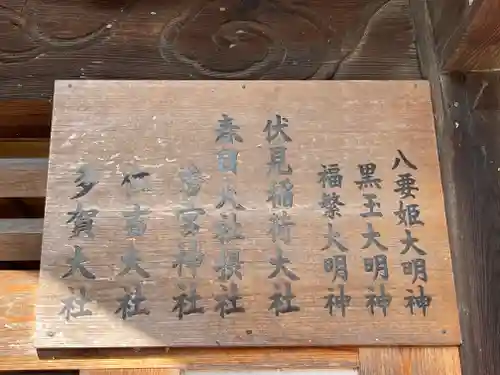 八乗姫大明神
黒玉大明神
福繁大明神
伏見稲荷大社
春日大社摂社
若宮神社
住吉大社
多賀大社